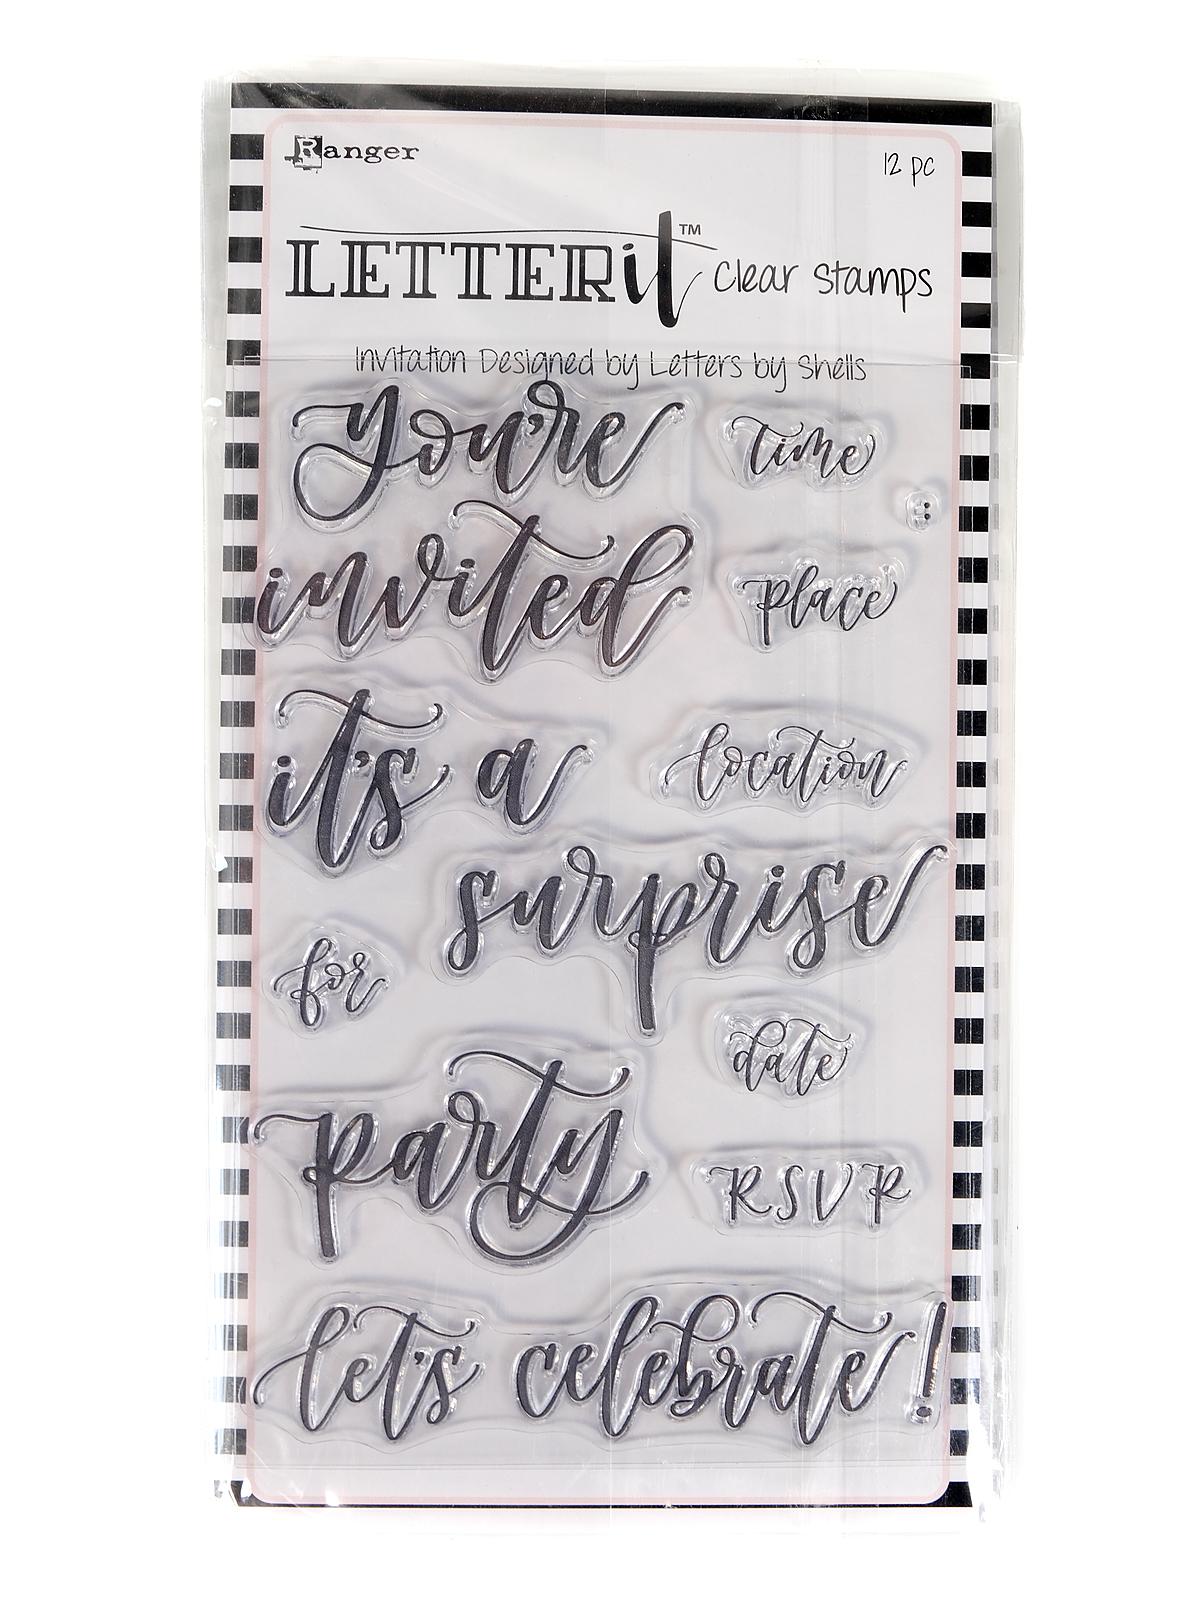 Ranger
12 pc
LETTERit™ Clear Stamps
Invitation Designed by Letters by Shells
you're
time
:
invited
place
it's a
location
surprise
for
date
party
RSVP
let's celebrate!